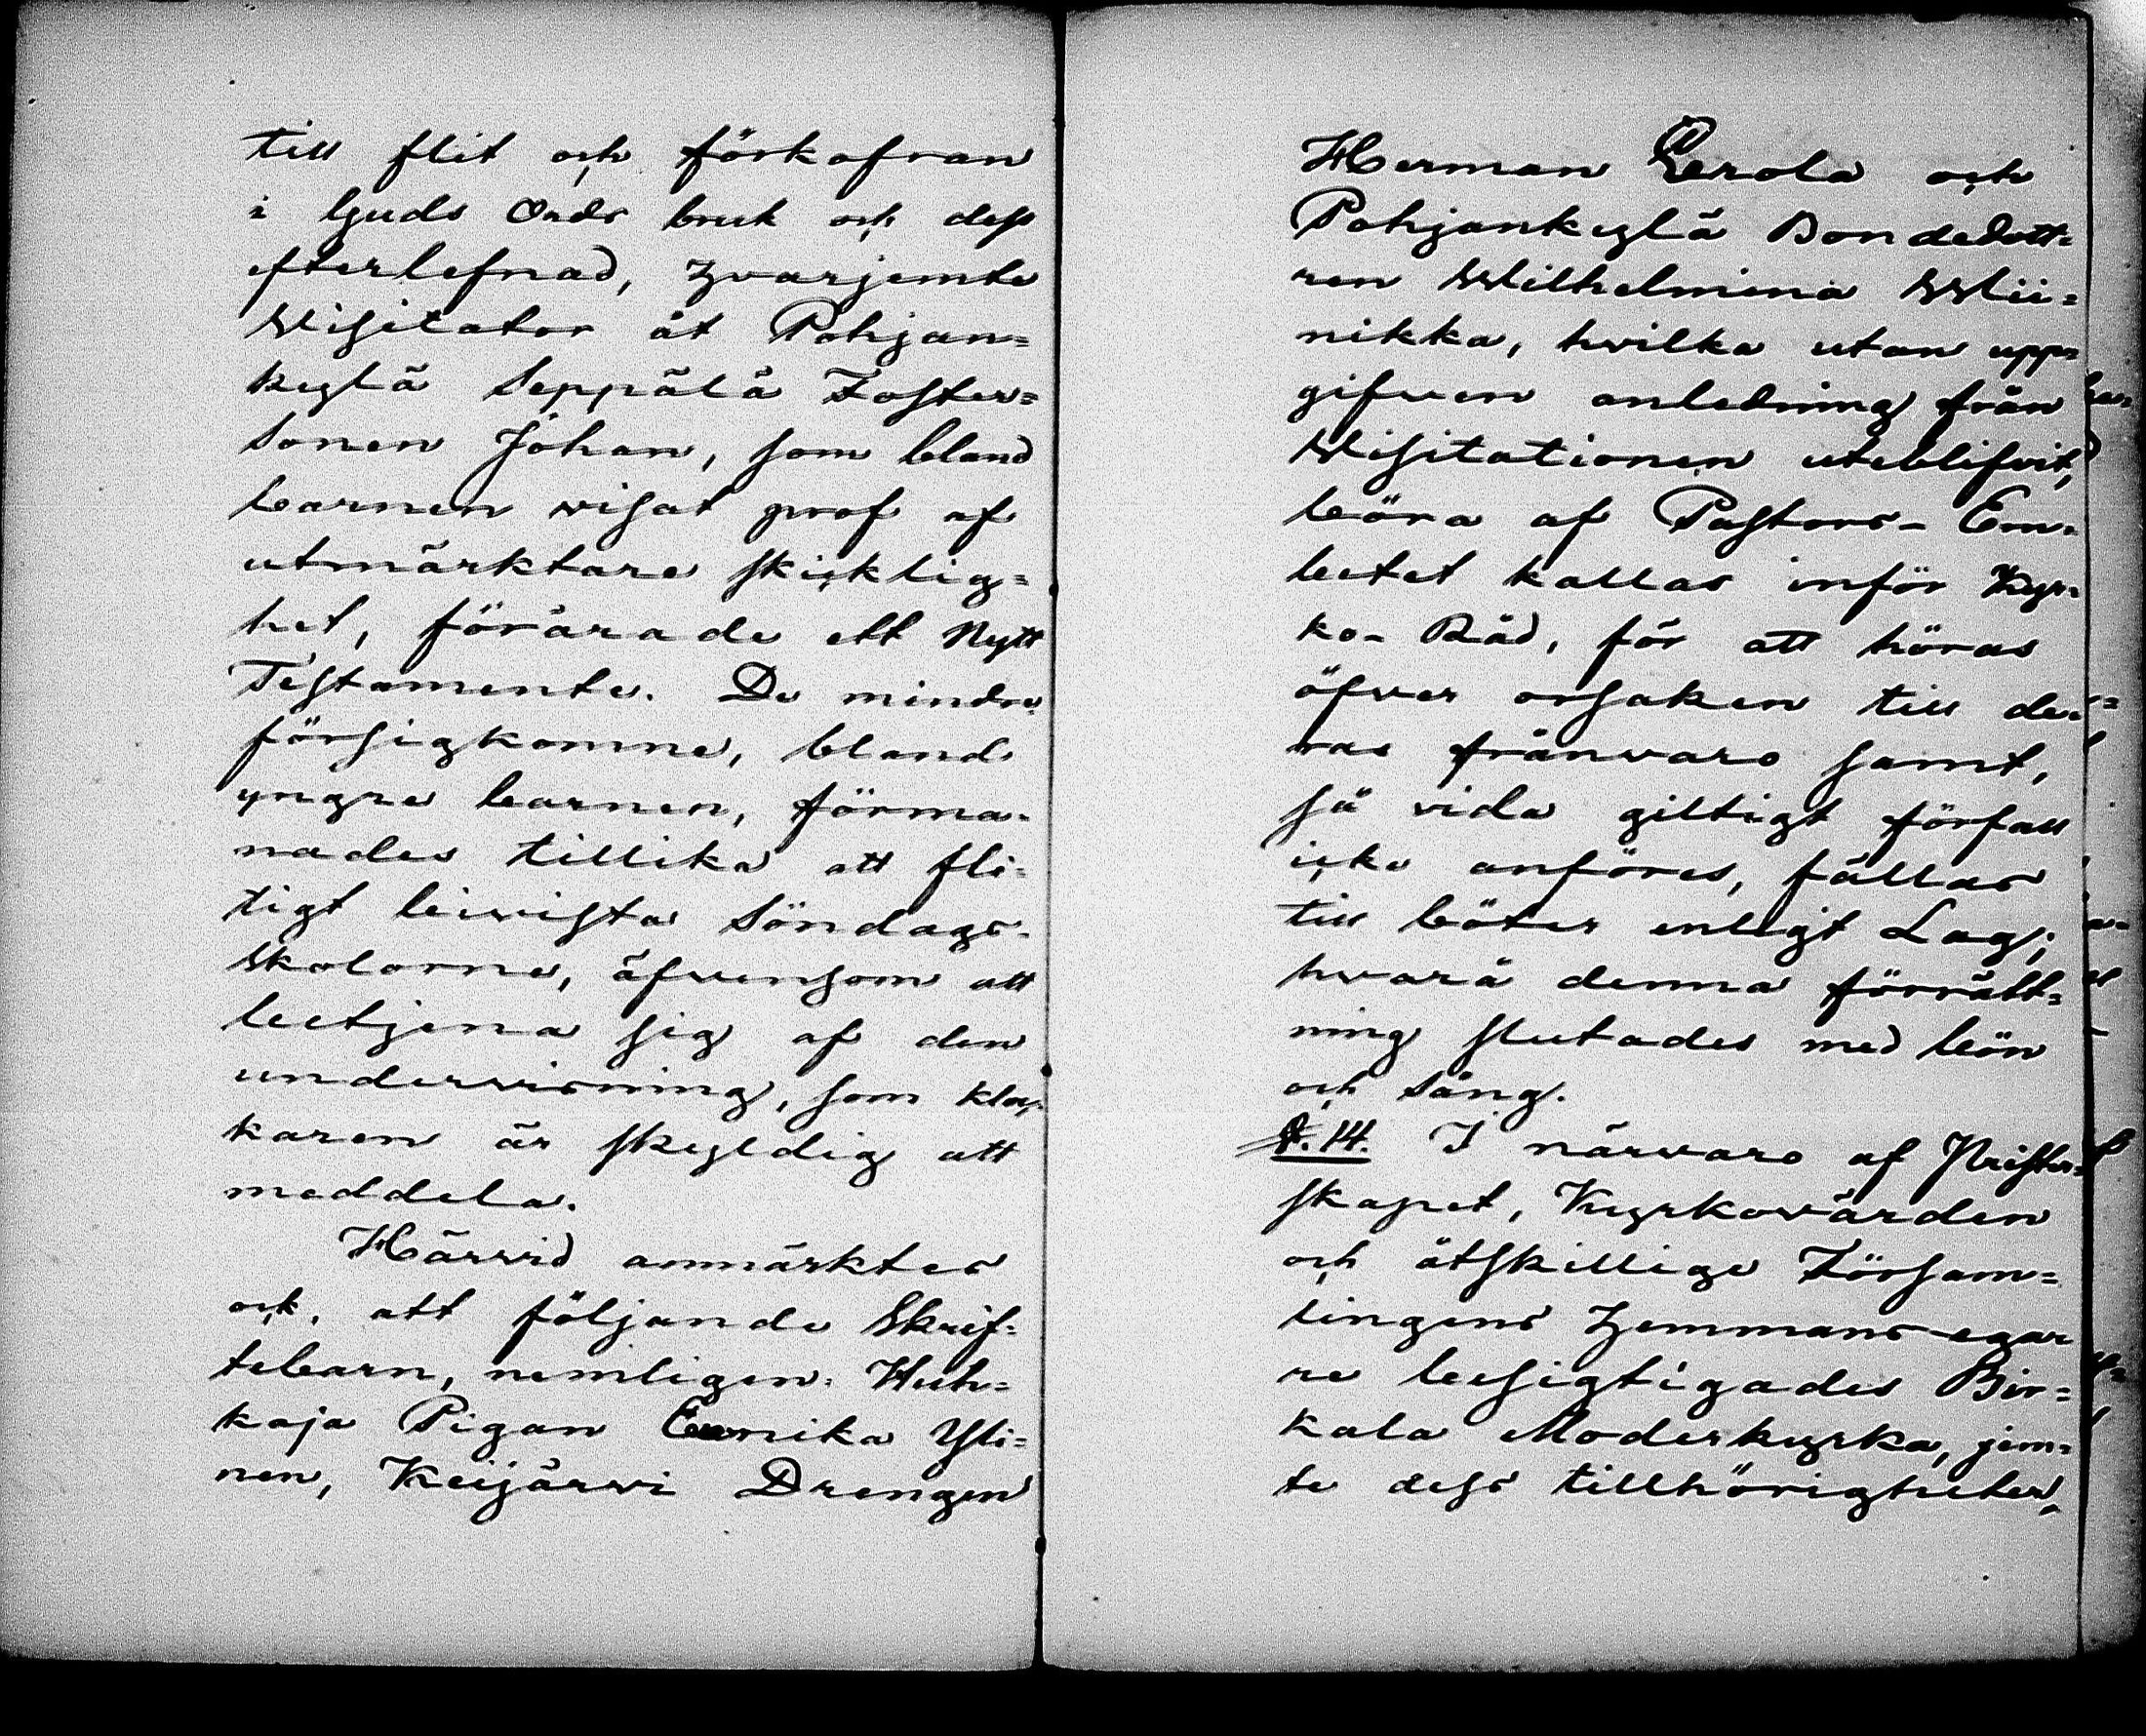 till flit och förkofran
i Guds Ords bruk och dess
efterlefnad, hvarjemte
Visitator åt Pohjan=
kylä Seppälä Foster=
Sonen Johan, som bland
barnen visat prof af
utmärktare skicklig=
het, förärade ett Nytt
Testamente. De mindre
försigkomne, bland
yngre barnen, förma=
nades tillika att fli=
tigt bivista Söndags=
skolorne, äfvensom att
betjena sig af den
undervisning, som kloc=
karen är skyldig att
meddela.
Härvid anmärktes
ock, att följande Skrif=
tebarn, nemligen: Wuh=
kaja Pigan Eunika Yli=
nen, Keijärvi Drengen
Herman Eerola och
Pohjankylä Bondedott=
ren Wilhelmina Wii=
nikka, hvilka utan upp=
gifven anledning från
Visitationen uteblifvit,
böra af Pastors-Em=
betet kallas inför Kyr=
ko-Råd, för att höras
öfver orsaken till de=
ras frånvaro samt,
så vida giltigt förfall
icke anföres, fällas
till böter enligt Lag;
hvarå denna förrätt=
ning slutades med bön
och sång.
§. 14. I närvaro af Prester=
skapet, Kyrkovärden
och åtskillige Försam=
lingens Hemmans-egar
re besigtigades Bir=
kala Moderkyrka, jem=
te dess tillhörigheter,